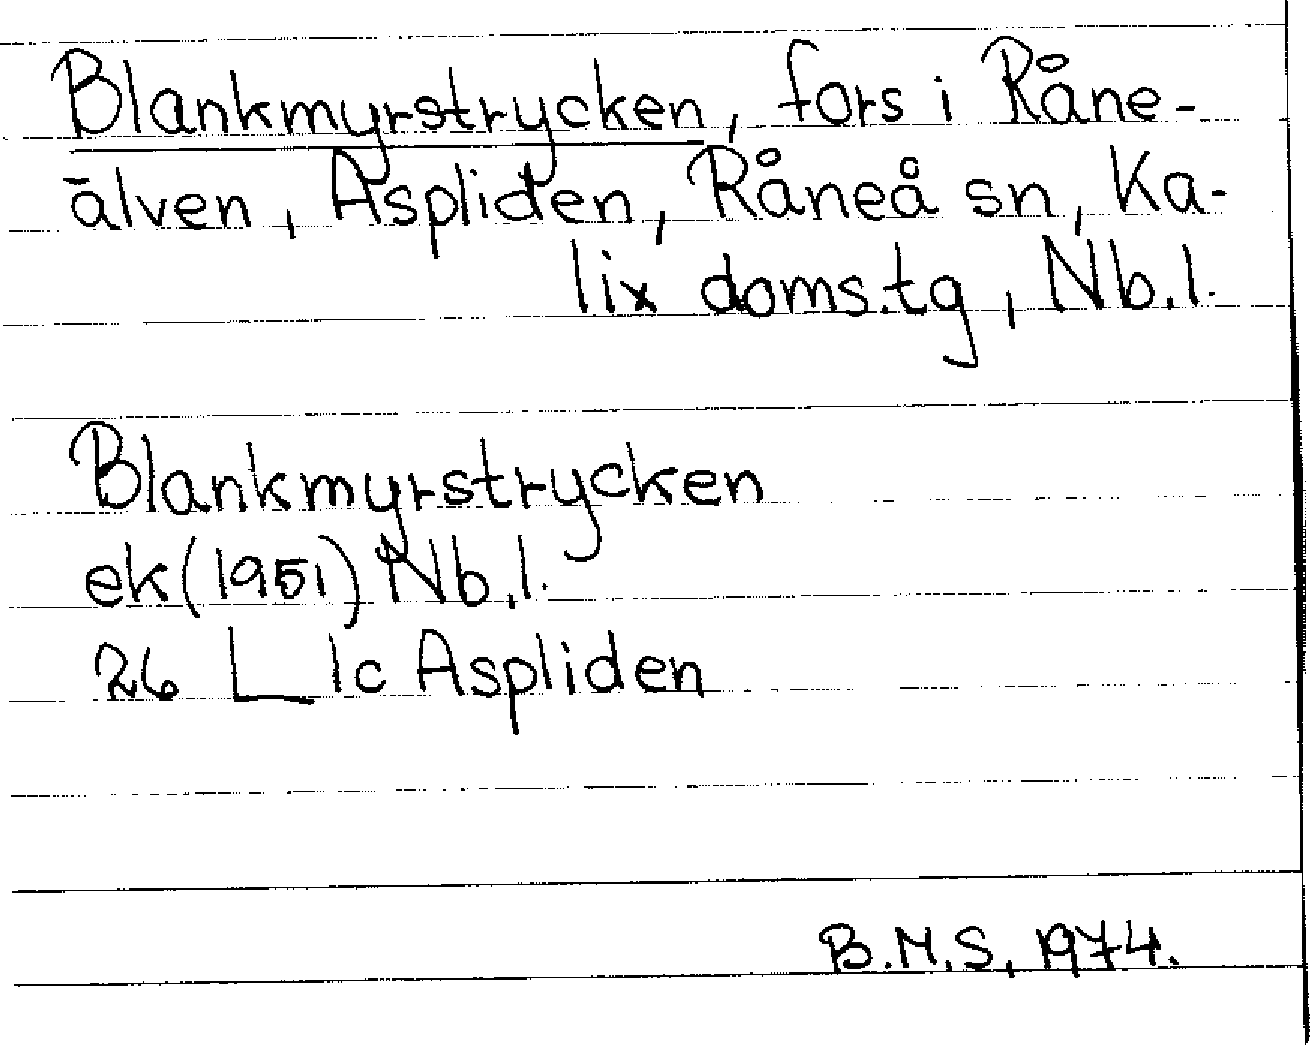 Blankmyrstrycken, fors i Råne-
älven, Aspliden, Råneå sn, Ka-
lix doms.tg, Nb.l.
Blankmyrstrycken
ek (1951) Nb.l.
26 L 1c Aspliden
B.M.S, 1974.